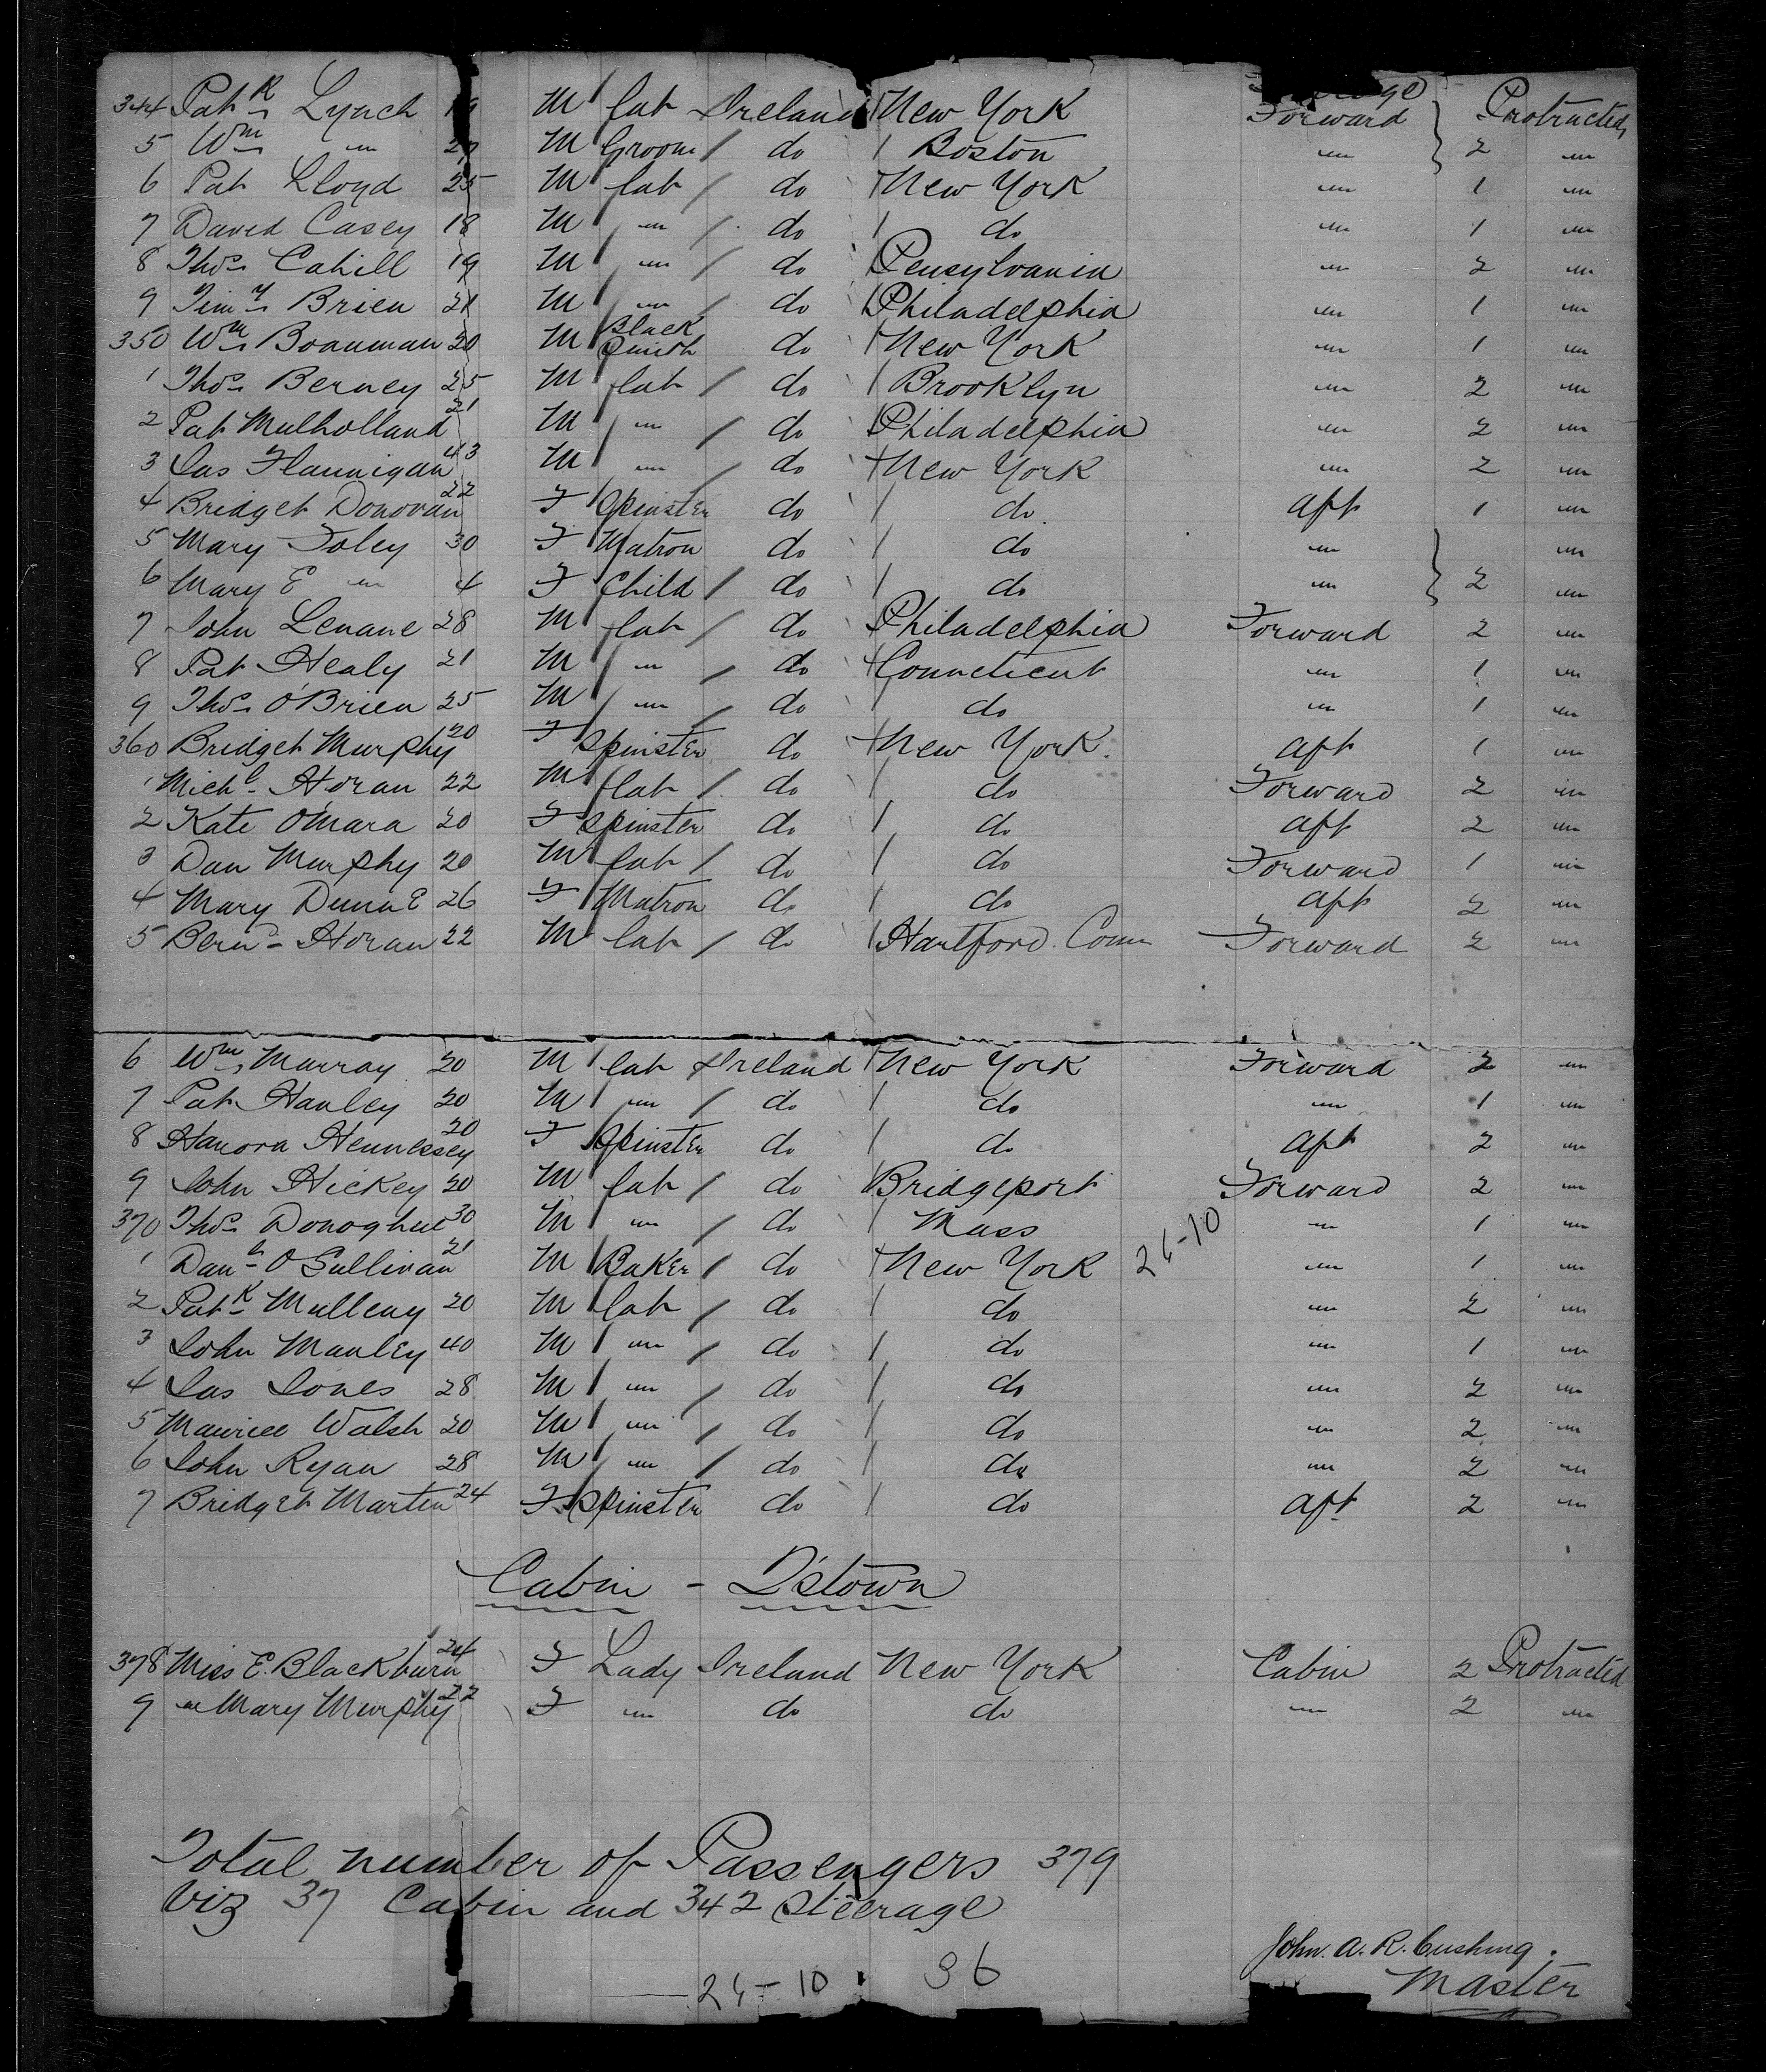 344 Patk Lynch 19 M lab Ireland New York Forward Protracted
5 Wm " 27 M Groom do Boston " 2 "
6 Pat Lloyd 25 M lab do New York " 1 "
7 David Casey 18 M " do do " 1 "
8 Thos Cahill 19 M " do Pensylvania " 2 "
9 Timy Brien 21 M " do Philadelphia " 1 "
350 Wm Boanman 20 M Black Smith do New York " 1 "
1 Thos Berney 25 M lab do Brooklyn " 2 "
2 Pat Mulholland 21 M " do Philadelphia " 2 "
3 Jas Flannigan 43 M " do New York " 2 "
4 Bridget Donovan 22 F Spinster do do aft 1 "
5 Mary Foley 30 F Matron do do " "
6 Mary E " 4 F Child do do " 2 "
7 John Lenane 28 M lab do Philadelphia Forward 2 "
8 Pat Healy 21 M " do Conneticut " 1 "
9 Thos O'Brien 25 M " do do " 1 "
360 Bridget Murphy 20 F Spinster do New York aft 1 "
1 Michl Horan 22 M lab do do Forward 2 "
2 Kate O'Mara 20 F Spinster do do aft 2 "
3 Dan Murphy 20 M lab do do Forward 1 "
4 Mary Dunne 26 F Matron do do aft 2 "
5 Bernd Horan 22 M lab do Hartford Conn Forward 2 "
6 Wm Murray 20 M lab Ireland New York Forward 2 "
7 Pat Hanley 20 M " do do " 1 "
8 Hanora Hennessey 20 F Spinster do do aft 2 "
9 John Hickey 20 M lab do Bridgeport Forward 2 "
370 Thos Donoghue 30 M " do Mass " 1 "
1 Danl O'Sullivan 21 M Baker do New York 24-10 " 1 "
2 Patk Mulleny 20 M lab do do " 2 "
3 John Manley 40 M " do do " 1 "
4 Jas Jones 28 M " do do " 2 "
5 Maurice Walsh 20 M " do do " 2 "
6 John Ryan 28 M " do do " 2 "
7 Bridget Martin 24 F Spinster do do aft 2 "
Cabin - Q'stown
378 Miss E. Blackburn 24 F Lady Ireland New York Cabin 2 Protracted
9 " Mary Murphy 22 F " do do " 2 "
Total number of Passengers 379
viz 37 Cabin and 342 Steerage
John. A. R. Cushing.
Master
24-10 36